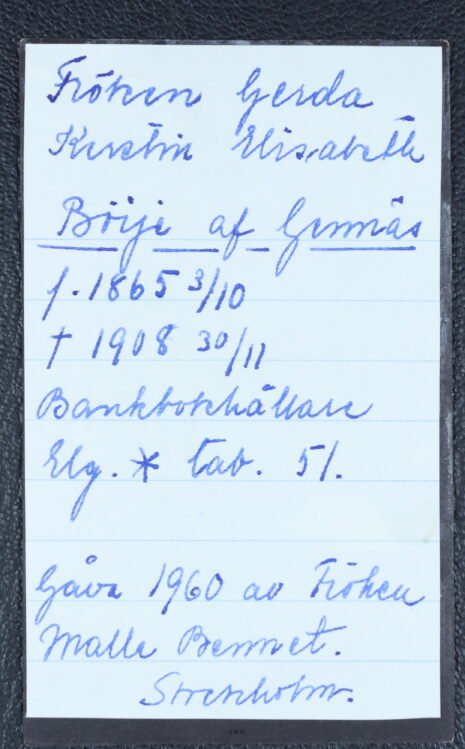 Fröken Gerda
Kerstin Elisabeth
Böije af Gennäs
f. 1865 3/10
† 1908 30/11
Bankbokhållare
Elg. * tab. 51.
Gåva 1960 av Fröken
Malle Bennet.
Stockholm.